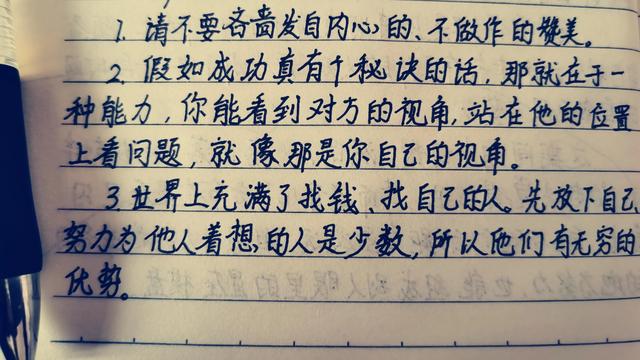 1. 请不要吝啬发自内心的、不做作的赞美。
2. 假如成功真有个秘诀的话，那就在于一
种能力，你能看到对方的视角，站在他的位置
上看问题，就像那是你自己的视角。
3. 世界上充满了找钱、找自己的人。先放下自己
努力为他人着想的人是少数，所以他们有无穷的
优势。